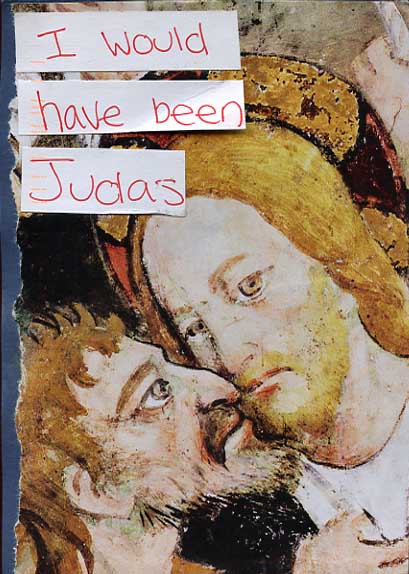 I would
have been
Judas